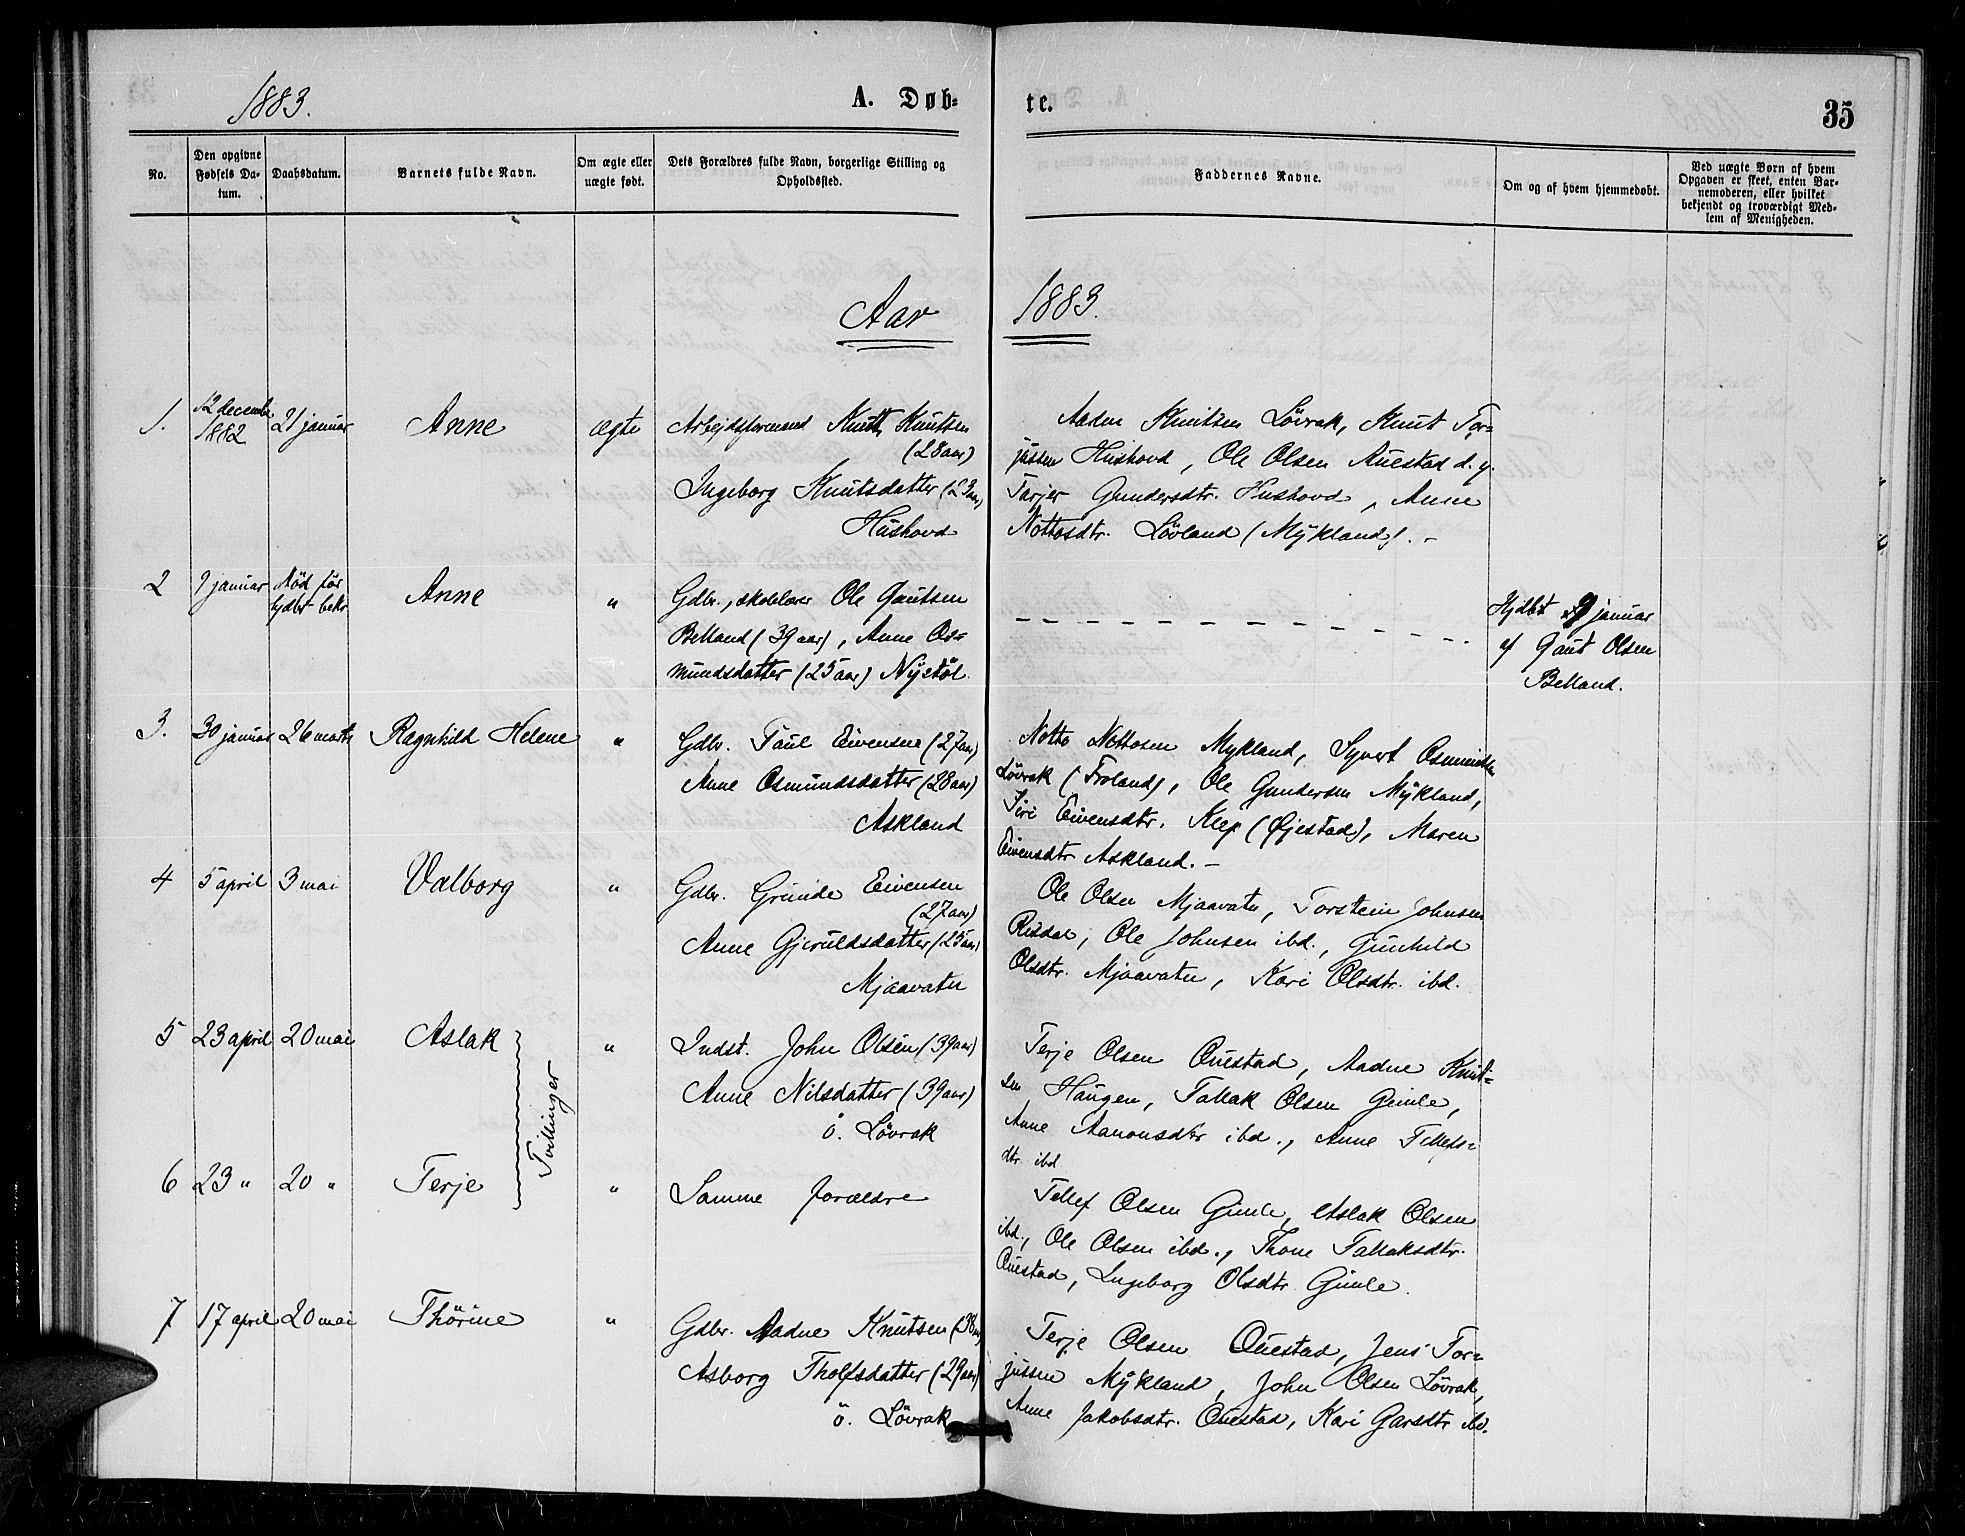 1883.
A. Døb-
te.
35
No.
Den opgivne Fødsels Da-tum.
Daabsdatum.
Barnets fulde Navn.
Om ægte eller uægte født.
Dets Forældres fulde Navn, borgerlige Stilling og Opholdssted.
Faddernes Navne.
Om og af hvem hjemmedøbt.
Ved uægte Børn af hvem Opgaven er skeet, enten Bar-nemoderen, eller hvilket bekjendt og troværdigt Med-lem af Menigheden.
Aar 1883.
1. 12 decembr 1882 21 januar Anne ægte Arbejdsformand Knut Knutsen
(28 aar)
Ingeborg Knutsdatter (23 aar)
Hushovd
Aadne Knutsen Lövrak, Knut Tor=
jussen Hushovd, Ole Olsen Auestad d. y.
Tarjer Gundersdtr. Hushovd, Anne
Nottosdtr. Lövland (Mykland). -
2 9 januar död för hjdbt bekr. Anne " Gdbr., skolelærer Ole Gautsen
Belland (39 aar), Anne Os=
mundsdatter (25 aar) Nystöl
Hjdbt 9 januar
af Gaut Olsen
Belland.
3. 30 januar 26 marts Ragnhild Helene " Gdbr. Paul Eivensen (27 aar)
Anne Osmundsdatter (28 aar)
Askland
Notto Nottosen Mykland, Syvert Osmundsen
Lövrak (Froland), Ole Gundersen Mykland,
Siri Eivensdtr. Klep (Øjestad), Maren
Eivensdtr Askland. -
4 5 april 3 mai Valborg " Gdbr. Gunde Eivensen
(27 aar)
Anne Gjeruldsdatter (25 aar)
Mjaavatn
Ole Olsen Mjaavatn, Torstein Johnsen
Risdal, Ole Johnsen ibd., Gunhild
Olsdtr. Mjaavatn, Kari Olsdtr. ibd.
5 23 april 20 mai Aslak " Indst. John Olsen (39 aar)
Anne Nilsdatter (39 aar)
ö. Lövrak
Tvillinger
Terje Olsen Ouestad, Aadne Knut=
sen Haugen, Tallak Olsen Gimle,
Anne Aanonsdtr ibd., Anne Tellefs=
dtr. ibd
6 23 " 20 " Terje " Samme forældre
Tellef Olsen Gimle, Aslak Olsen
ibd., Ole Olsen ibd., Thone Tallaksdtr.
Ouestad, Ingeborg Olsdtr Gimle.
7 17 april 20 mai Thörine " Gdbr. Aadne Knutsen (38 aar)
Asborg Tholfsdatter (29 aar)
ö. Lövrak
Terje Olsen Ouestad, Jens Tor=
jussen Mykland, John Olsen Lövrak,
Anne Jakobsdtr. Ouestad, Kari Garsdtr ibd.